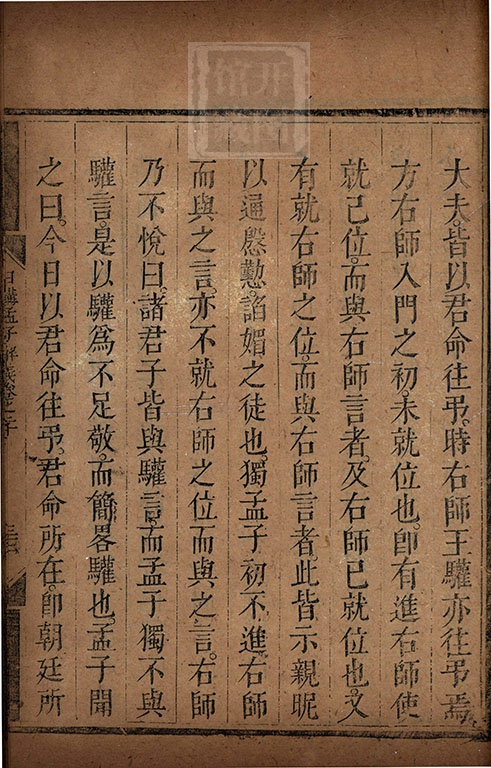 大夫。皆以君命往弔。時右師王驩亦往弔焉。
方右師入門之初。未就位也。卽有進右師使
就己位。而與右師言者。及右師已就位也。又
有就右師之位。而與右師言者。此皆示親昵
以通慇懃。諂媚之徒也。獨孟子初不進右師
而與之言。亦不就右師之位而與之言。右師
乃不悅曰。諸君子皆與驩言。而孟子獨不與
驩言。是以驩爲不足敬。而簡畧驩也。孟子聞
之曰。今日以君命往弔。君命所在。卽朝廷所
日講孟子解義卷之